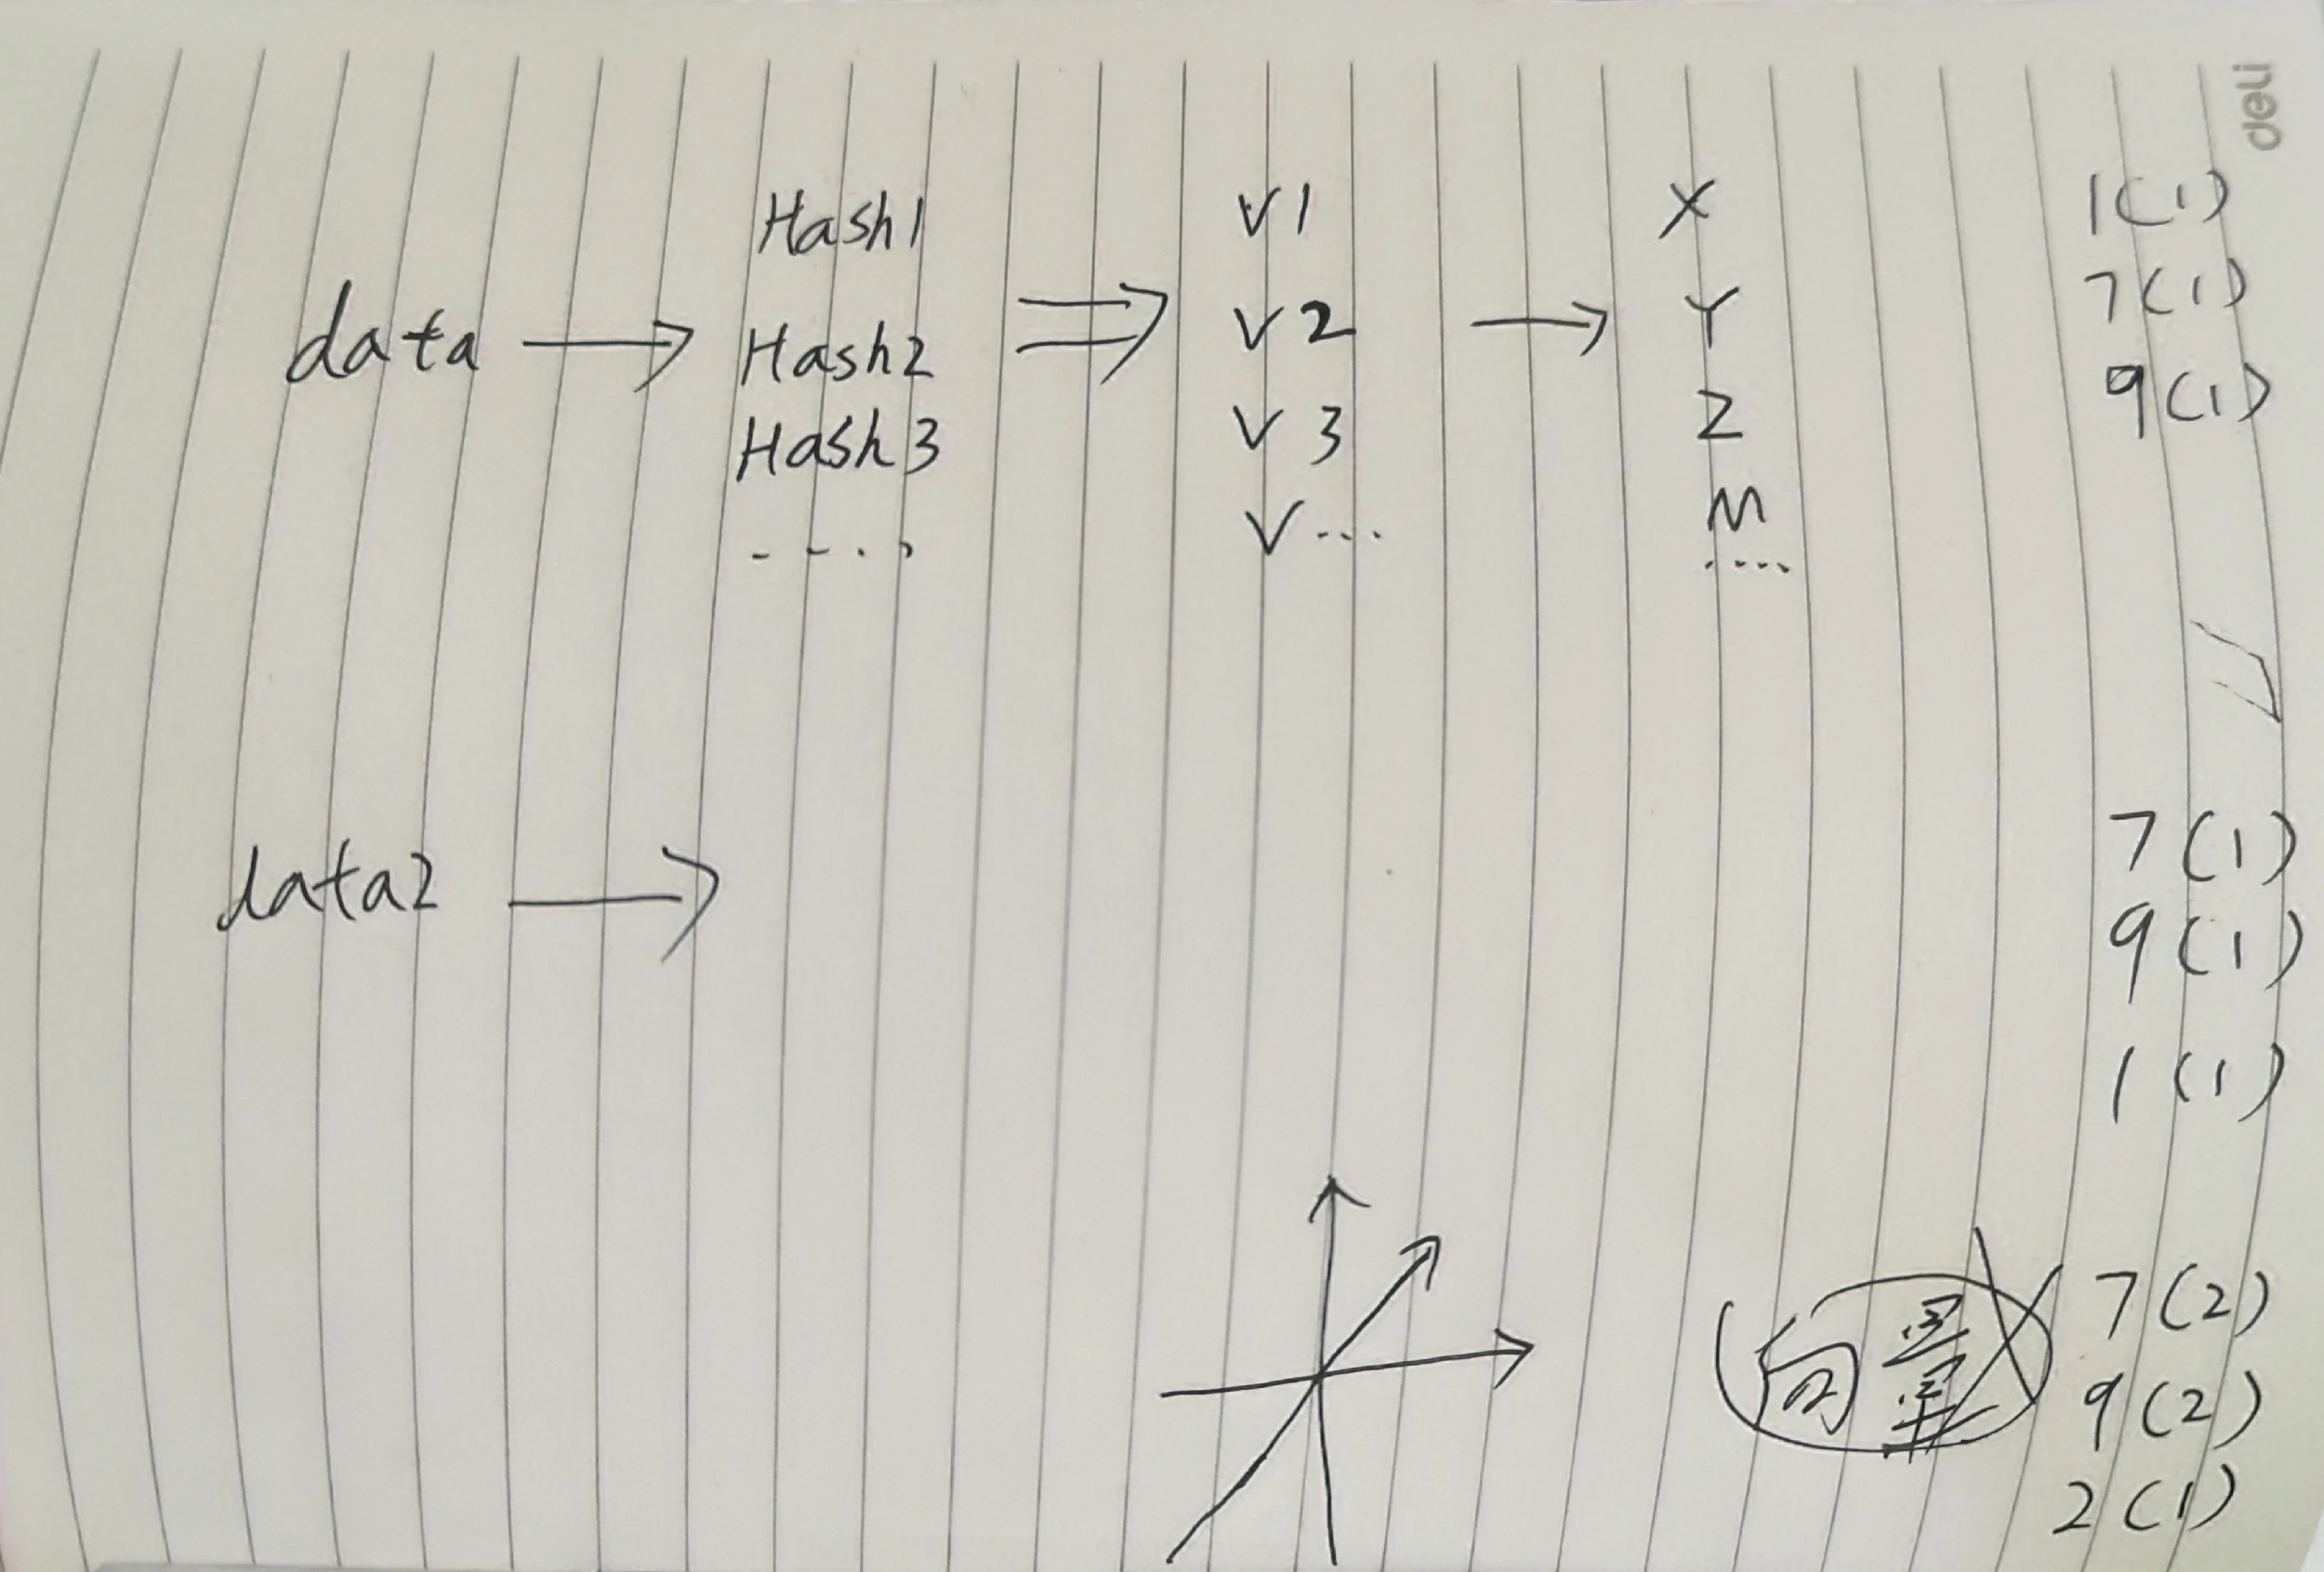 deli
Hash1 V1 X 1(1)
data → Hash2 ⇒ V2 → Y 7(1)
Hash3 V3 Z 9(1)
.... V... M
....
data2 → 7(1)
9(1)
1(1)
向量 7(2)
9(2)
2(1)